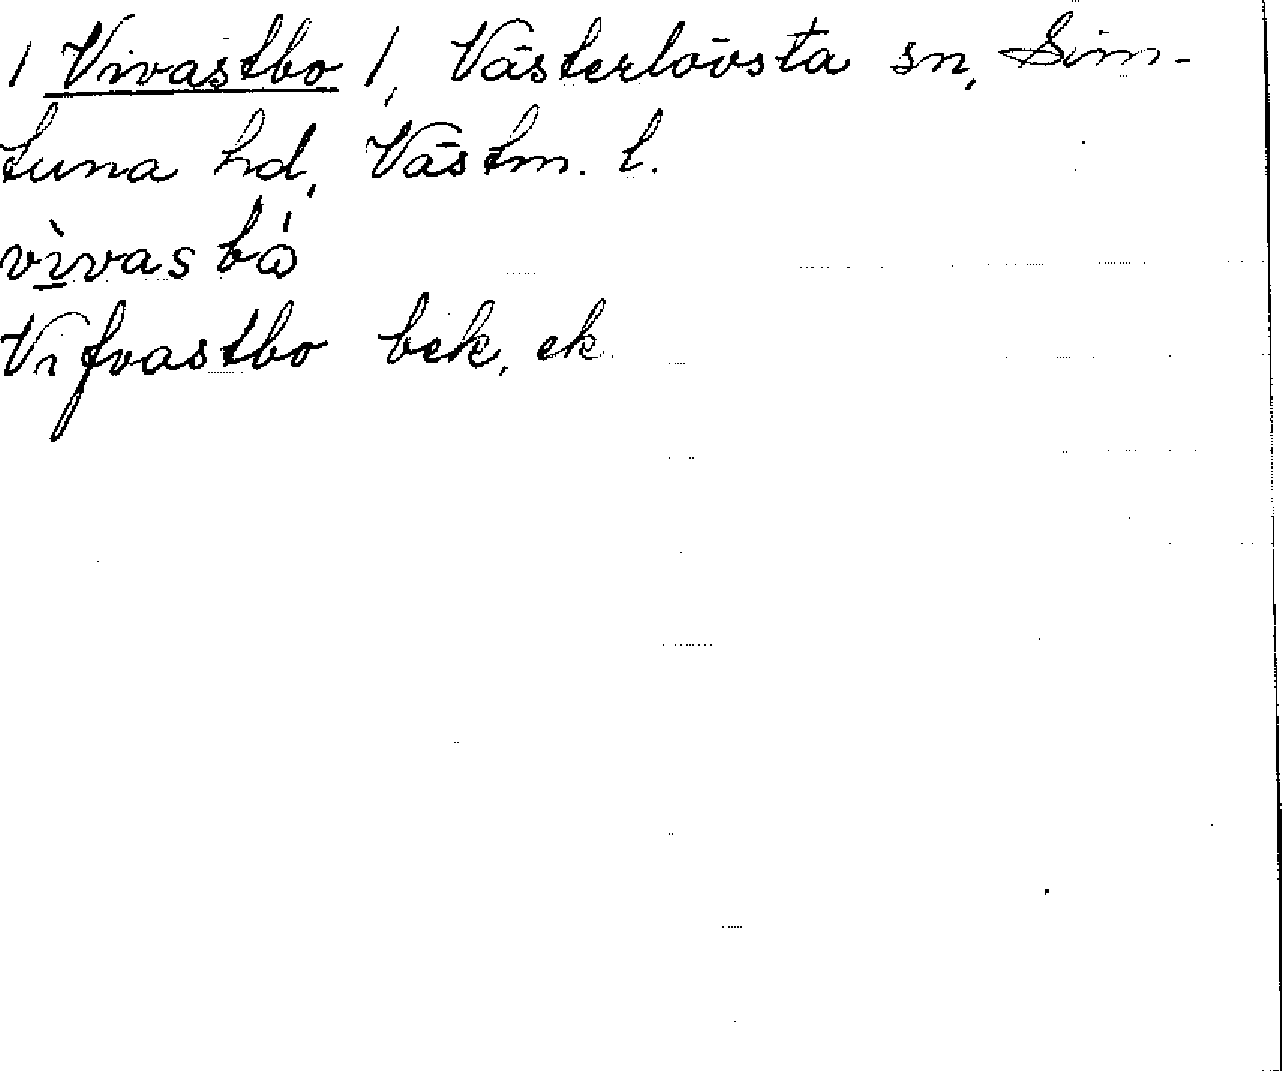 / Vivastbo /, Västerlövsta sn, Sim-
tuna hd, Västm. l.
vìvasbó
Vifvastbo bek, ek